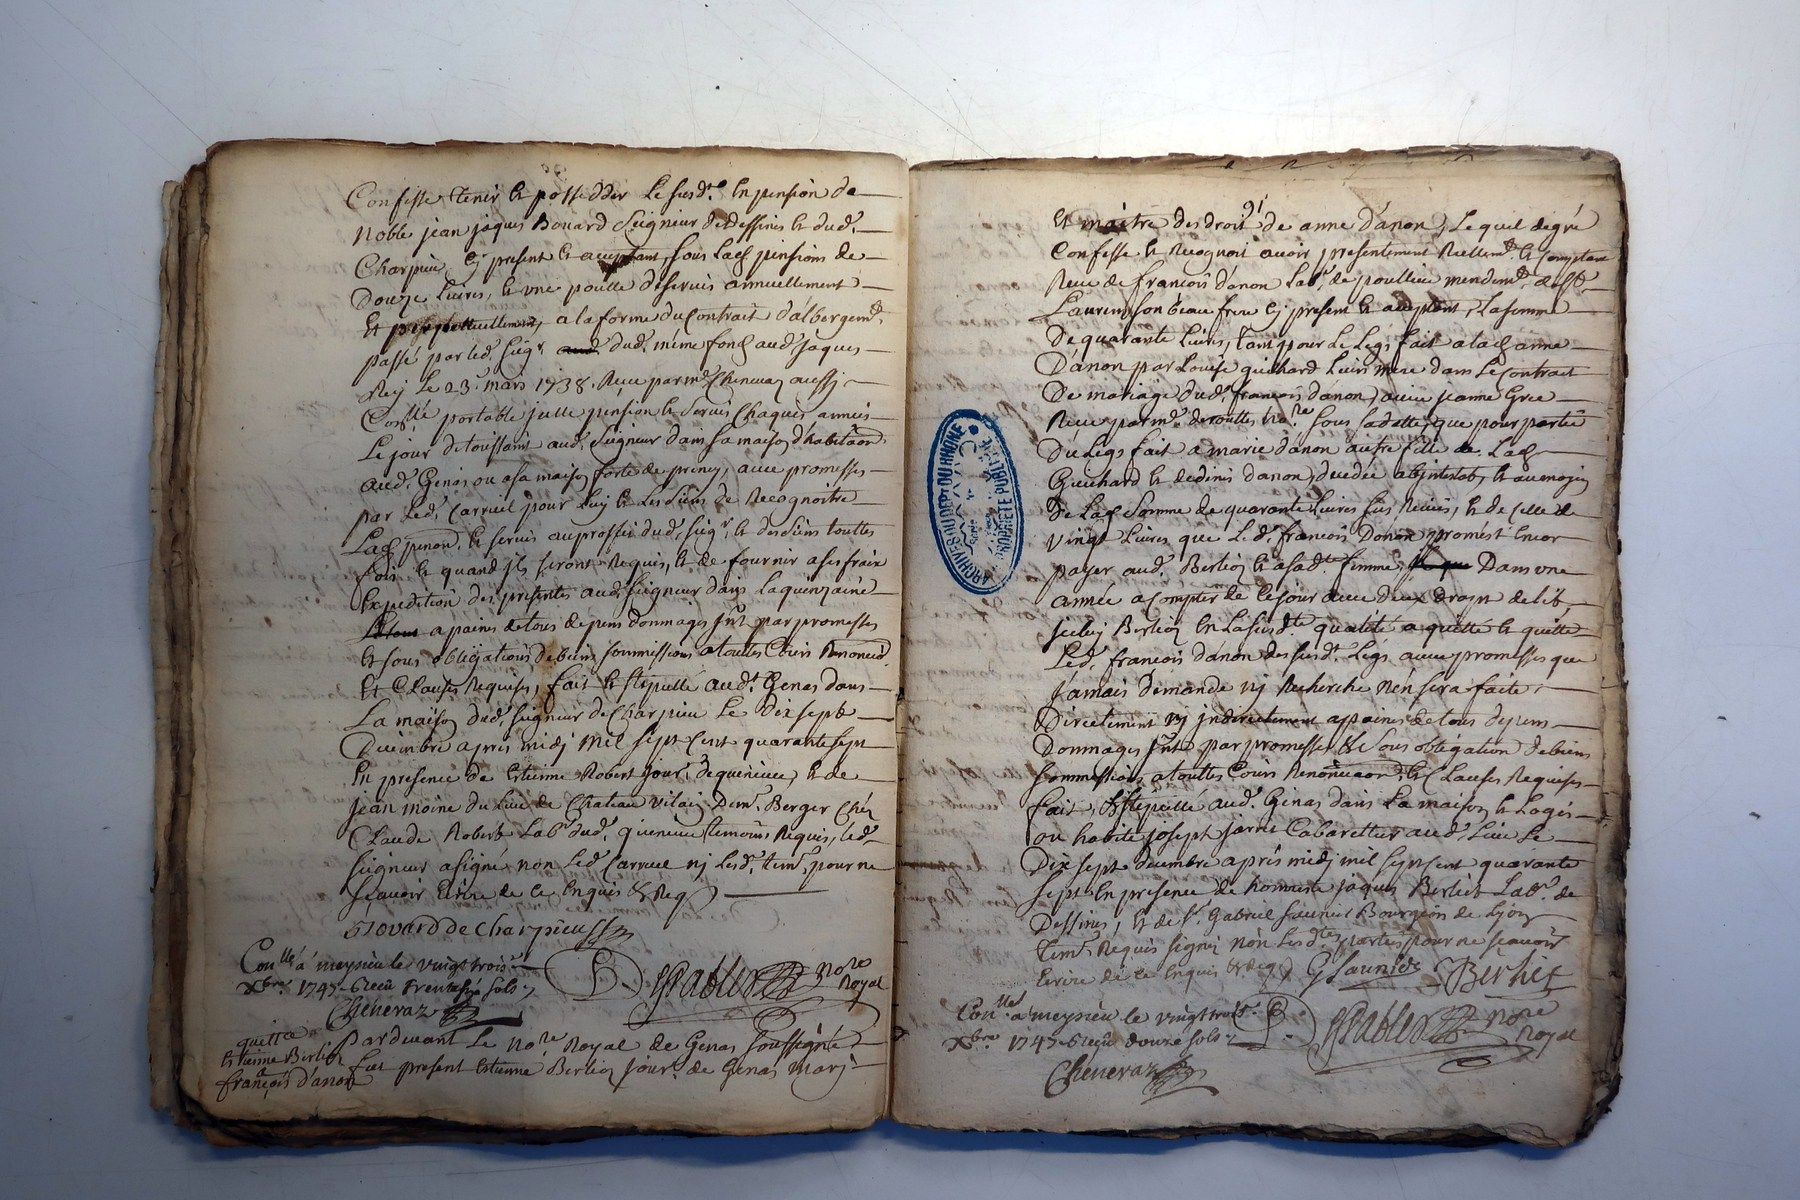 Confesse tenir et posseder le susd.t en pension de
Noble jean jaques Bouard Seigneur de Dessines et dud.
Charpieu cy present et acceptant, sous lad pensions de
Douze livres, et une poulle de servis annuellement
Et perpetuellement, a la forme du Contrait d'albergem.t
passé par led. seig.r dud. même fond aud. jaques
Rey le 23. mars 1738. Reçu par m.e Chenevaz aussy
Con.llé portable jcelle pension et servis chaques années
Le jour de toussaint aud. Seigneur dans sa maison d'habitaon
aud. Genas ou a sa maison forte de , avec promesses
par led. Carruel pour luy et les siens de Recognoitre
Lad pension, et servis au proffit dud. seig.r et des siens touttes
fois et quand jls seront Requis, et de fournir a ses frais
Expedition des presentes aud. Seigneur dans la quinzaine
a paines de tous depens dommages jnt. par promesses
et sous obligations de biens soumissions a toutes Cours Renonciaon.
Et Clauses Requises, fait et stipullé aud.t Genas dans
La maison dud. seigneur de Charpieu le dix sept
Decembre après midj mil sept cent quarante sept
En presence de Estienne Robert jour. de quenieue, et de
jean moine du lieu de Chateau Vilain Dem.t Berger chés
Claude Robert Lab.r dud. quenieue temoins Requis, led.
seigneur a signé non led. Carruel nj lesd. tem. pour ne
sçavoir ecrire de ce Enquis & Req
Bovard de Charpieu
Con.llé a meysieu le vingt trois
Xbre. 1747. Reçu trente six sols
Chenevaz
Grablier no.re Royal
quitta
Estienne Berlioz
a
françois d'anon
Pardevant Le no.re Royal de Genas soussigné
fut present Estienne Berlioz jour. de Genas marj
91
Et maitre des droit de anne d'anon, Lequel de gré
Confesse et Recognoit avoir presentement Reellem.t et comptant
Receu de françois d'anon Lab.r de poullieu mendem.t de St.
Laurens son beau frere cy present et acceptant, La somme
De quarante livres, tant pour le Legs fait a lad anne
D'anon par Louise guichard leur mere dans le contrait
De mariage dud. françois d'anon avec jeanne Gree
Receu par m.e deroulles no.re sous sa datte, que pour partie
Du Legs fait a marie d'anon autre fille de Lad
Guichard et de denis d'anon, decedée abjntestat, et au moyen
De Lad Somme de quarante livres sus Reçues, et de celle de
vingt Livres que Led. françois Danon promest encor
payer aud. Berlioz et a sad.te femme, Dans une
année a compter de ce jour avec deux droit de lib,
jceluy Berlioz en La susd.te qualité a quitté et quitte
Led. françois d'anon des susd.t Legs avec promesses que
jamais Demande nj Recherche n'en sera faite
Directement nj jndirectement a paines de tous depens
Dommages jnt par promesses & sous obligation de biens
soumissions a touttes Cours Renonciaon, et Clauses Requises
fait, & stipullé aud. Genas dans La maison et Logis
ou habite joseph jarret Cabarettier aud. lieu le
Dix sept decembre après midj mil sept cent quarante
sept En presence de honneste jaques Berliet Lab.r de
Dessines, et de s.r Gabriel Saunier Bourgeois de Lyon
tem. Requis signés non Lesd.tes parties pour ne sçavoir
ecrire de ce Enquis & Req. G Saunier Berliet
Con.llé a meysieu le vingt trois
Xbre. 1747. Reçu douze sols
Chenevaz
Grablier no.re Royal
ARCHIVES DU DEPT DU RHONE
PROPRIETE PUBLIQUE